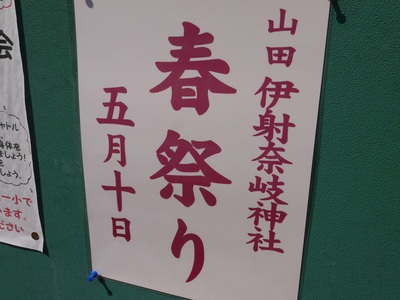 山田 伊射奈岐神社
春祭り
五月十日
会
ャトル
身体を
ましょう!
を
しょう。
一小で
います。
ださい